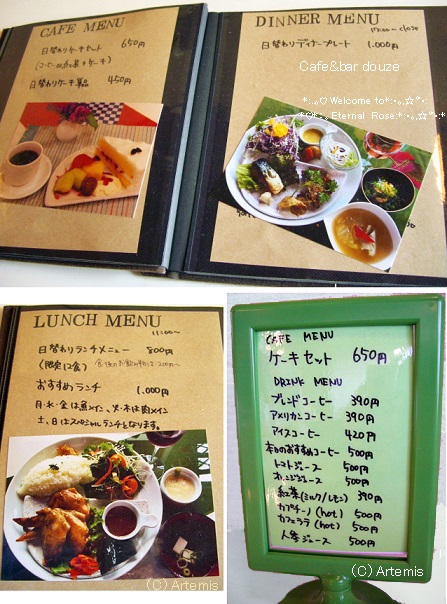 CAFE MENU
日替わりケーキセット 650円
日替わりケーキ単品 450円
DINNER MENU
17:00〜close
日替わりディナープレート 1.000円
Cafe&bar douze
*:..｡♡Welcome to*:･｡｡☆”･:
Eternal Rose
LUNCH MENU
11:00〜
日替わりランチメニュー 800円
(限定12食)
おすすめランチ 1.000円
月・水・金は魚メイン、火・木は肉メイン
土、日はスペシャルランチとなります。
(C) Artemis
CAFE MENU
ケーキセット 650円
DRINK MENU
ブレンドコーヒー 390円
アメリカンコーヒー 390円
アイスコーヒー 420円
本日のおすすめコーヒー 500円
トマトジュース 500円
オレンジジュース 500円
紅茶(ミルク/レモン) 390円
カプチーノ(hot) 500円
カフェラテ(hot) 500円
人参ジュース 500円
(C) Artemis